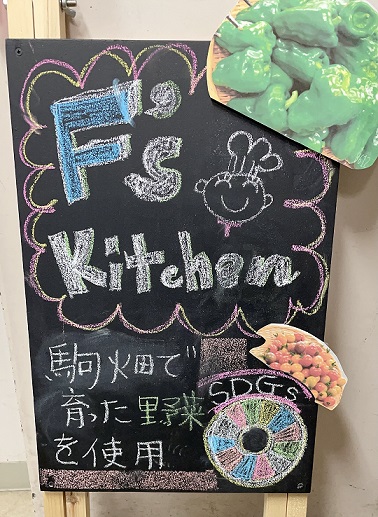 F's
Kitchen
駒畑で
育った野菜
を使用
SDGs